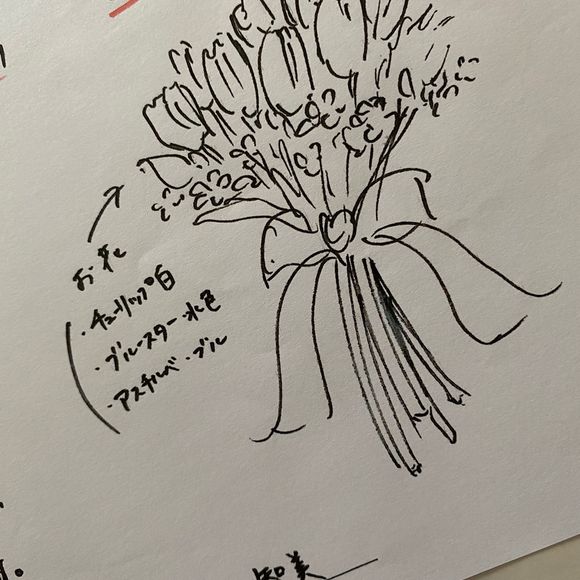 お花
・チューリップ 白
・ブルースター・水色
・アスチルベ・ブル
知美